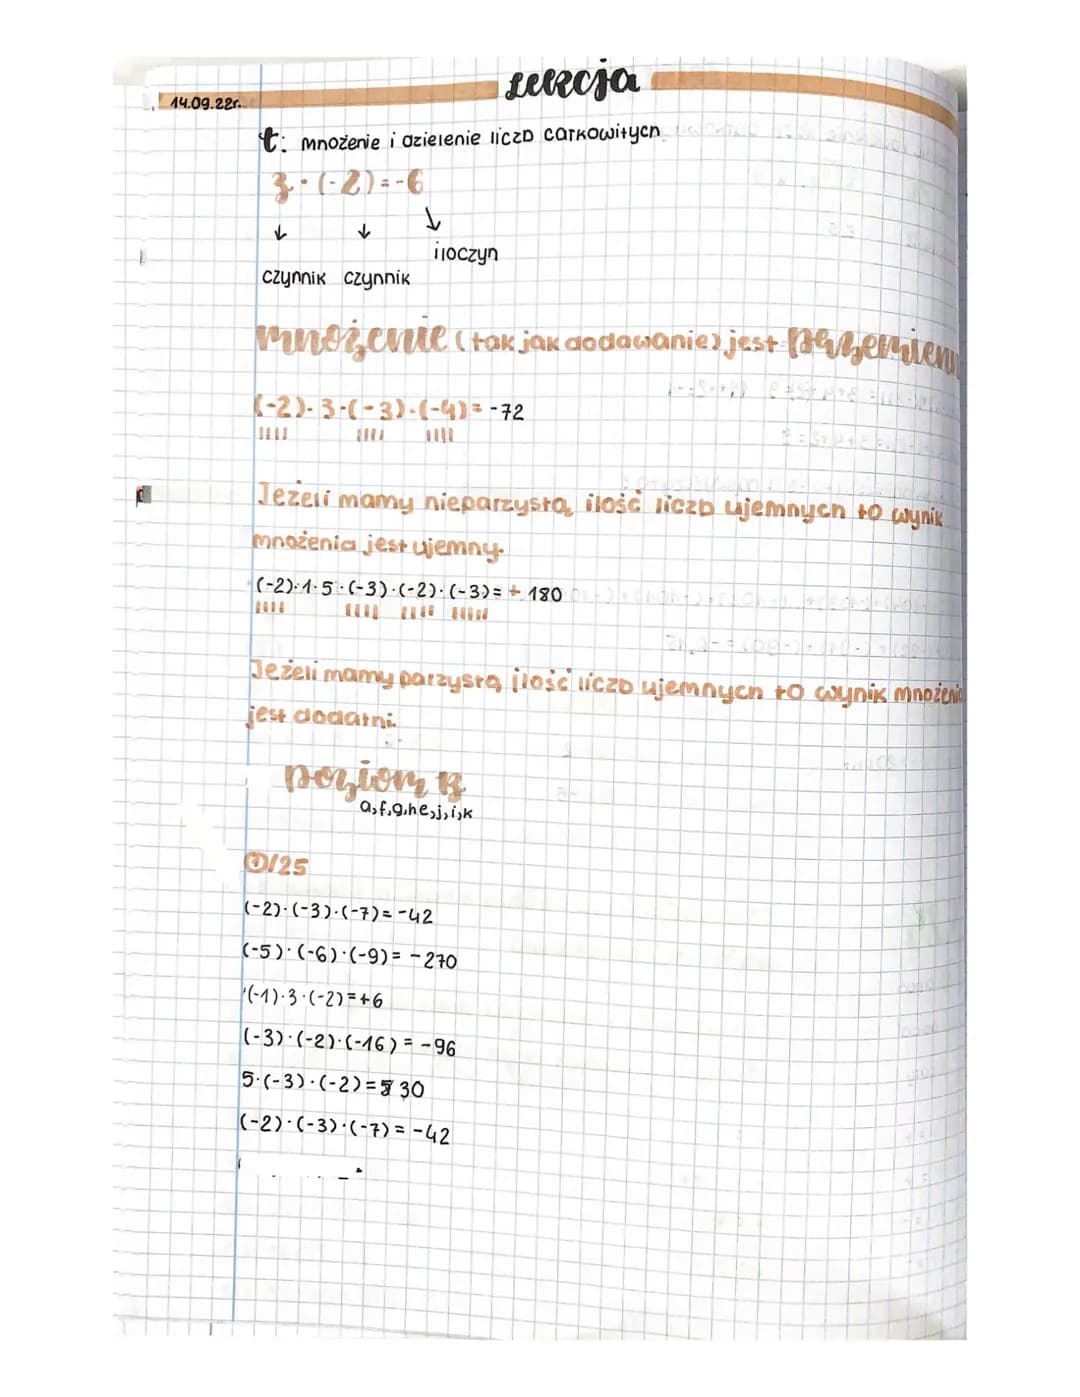 lekcja
14.09.22r.
t: mnożenie i dzielenie liczb całkowitych
3·(-2)=-6
↓ ↓ ↓
iloczyn
czynnik czynnik
mnożenie (tak jak dodawanie) jest
(-2)·3·(-3)·(-4)=-72
Jeżeli mamy nieparzystą ilość liczb ujemnych to wynik
mnożenia jest ujemny.
(-2)·1·5·(-3)·(-2)·(-3)=+180
Jeżeli mamy parzystą ilość liczb ujemnych to wynik mnożenia
jest dodatni.
poziom B
a,f,g,h,e,j,i,k
①/25
(-2)·(-3)·(-7)=-42
(-5)·(-6)·(-9)=-270
(-1)·3·(-2)=+6
(-3)·(-2)·(-16)=-96
5·(-3)·(-2)=30
(-2)·(-3)·(-7)=-42